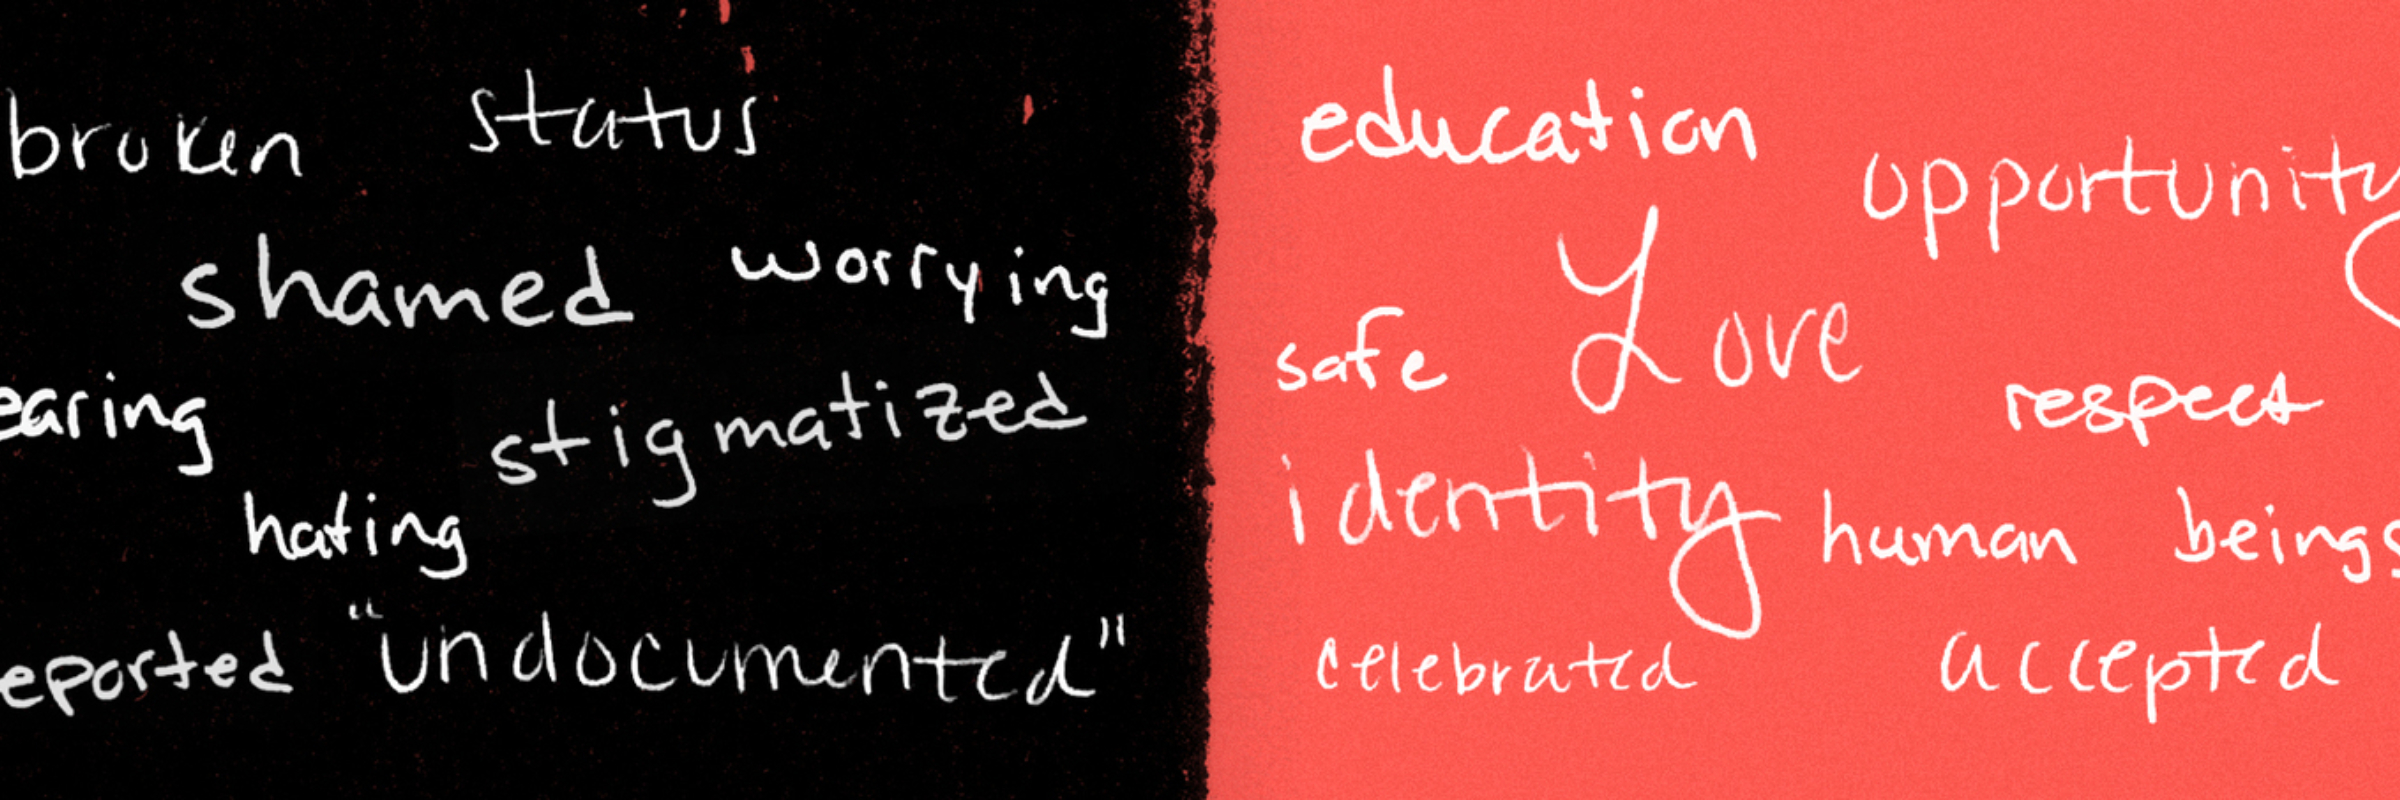 broken status
shamed worrying
earing stigmatized
hating
eported "undocumented"
education opportunity
Love
safe respect
identity human beings
celebrated accepted